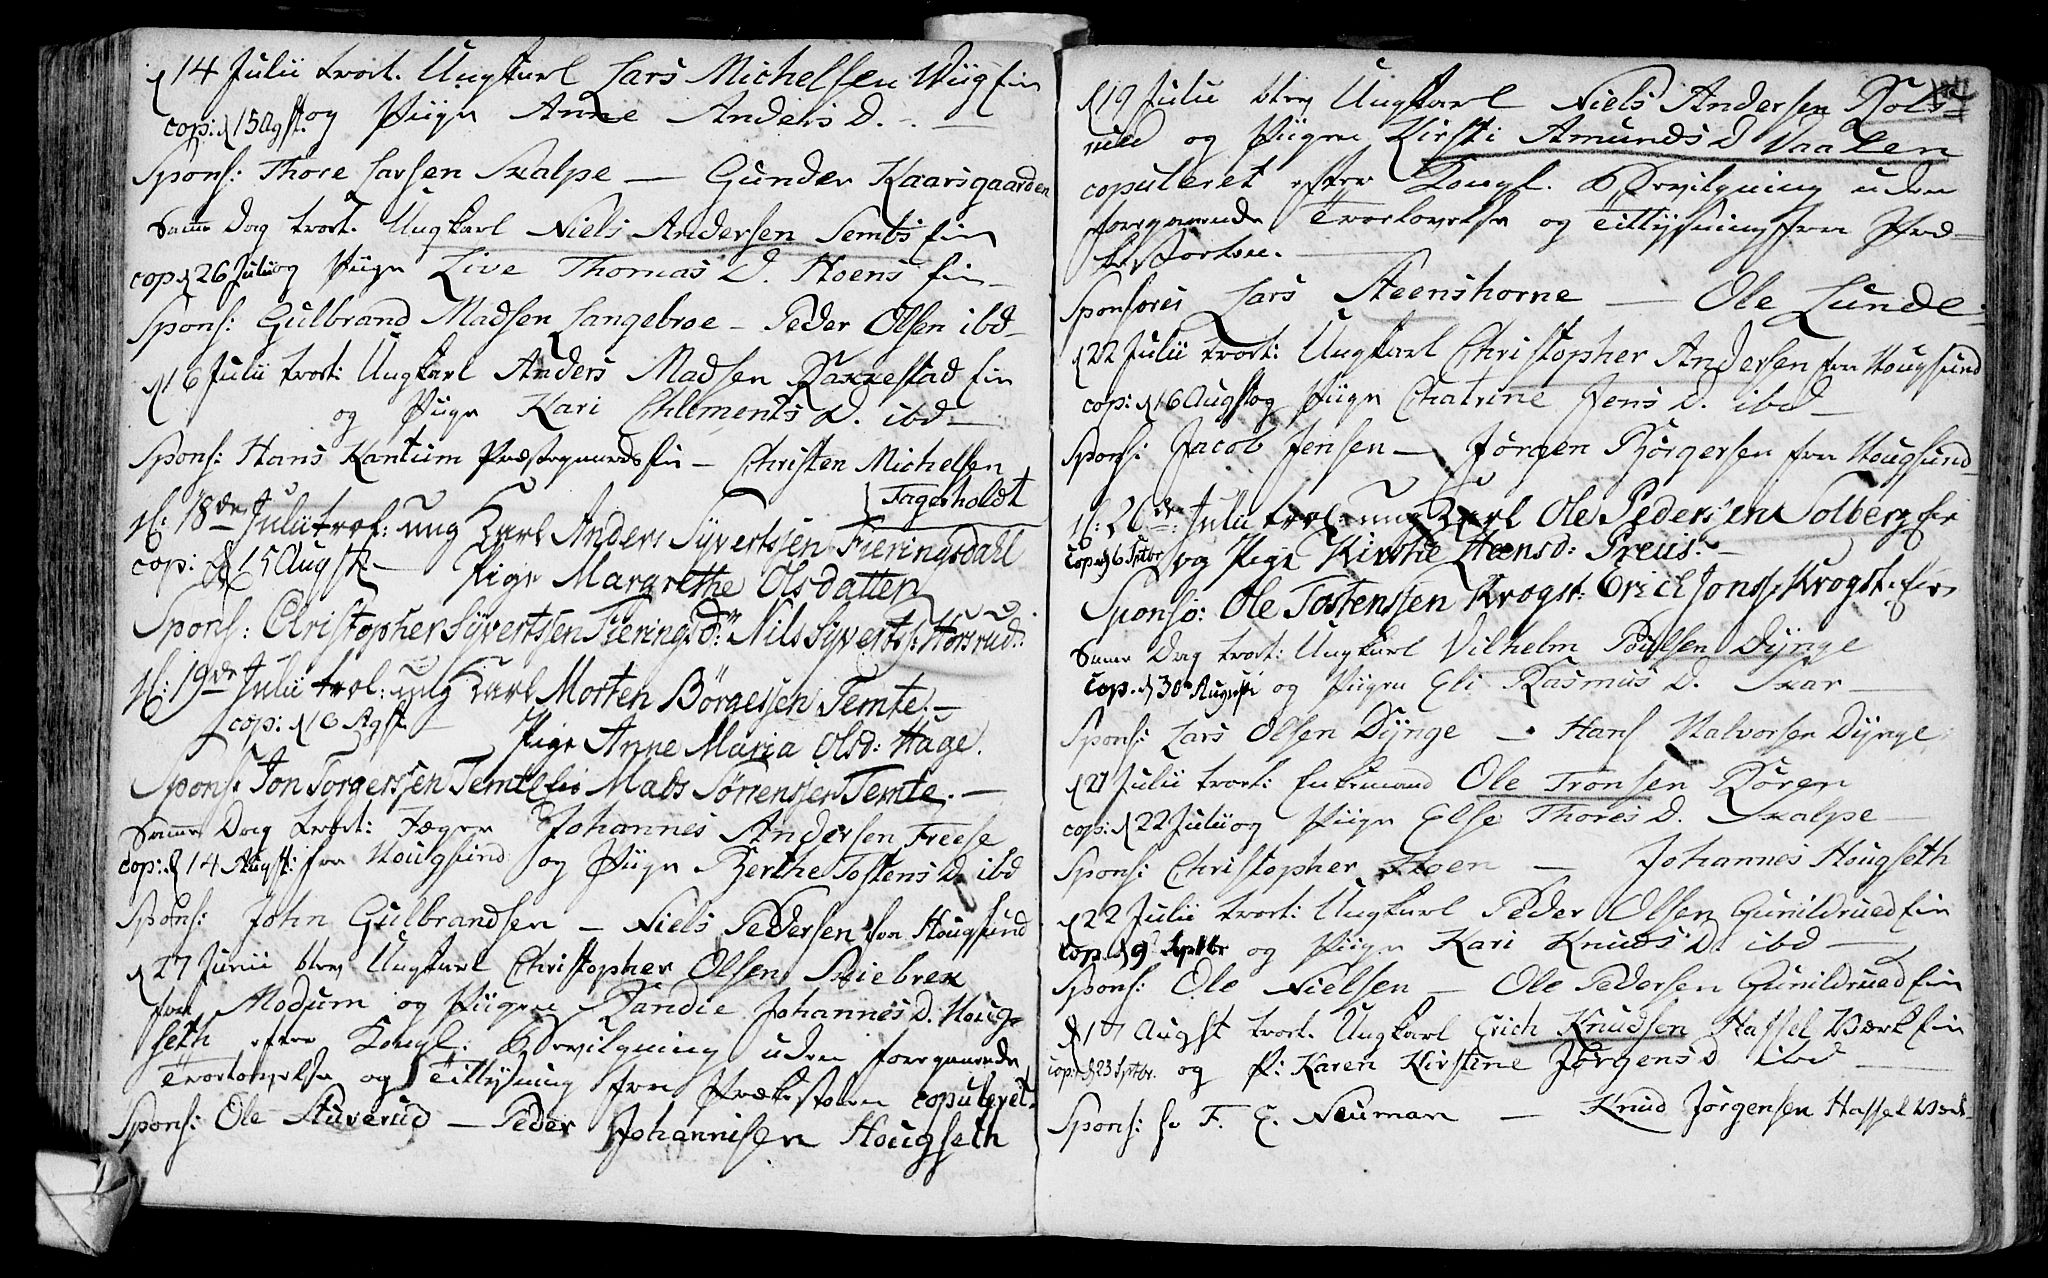 d 14 Julii trol. Ungkarl Lars Michelsen Wiig fin
cop: d 15 Agst. og Piige Anne Anders D. —
Spons: Thore Larsen Skalpe — Gunder Kaarsgaarden
Samme Dag trol. Ungkarl Niels Andersen Sembs fin
cop d 26 Julii og Piige Live Thomas D. Hoens fin —
Spons: Gulbrand Madsen Langebroe — Peder Olsen ibd —
d 16 Julii trol: Ungkarl Anders Madsen Rakkestad fin
og Piige Kari Chlements D. ibd —
Spons: Hans Kantum Præstegaards fin — Christen Michelsen
Fagerholdt
d: 18de Julii trol: ung Karl Anders Syvertssen Fieringsdahl
cop: d 15 Augst: — Pige Margrethe Olsdatter
Spons: Christopher Syvertssen Fieringsd: Nils Syvertss: Horsrud:
d: 19de Julii trol: ung Karl Morten Börgessen Temte. —
cop: d 16 Agst. — Pige Anne Maria Olsd: Hage.
Spons: Jon Torgerssen Temte fin Mads Sörrenssen Temte. —
Samme Dag trol: Jæger Johannes Andersen Freese
cop: d 14 Augst: fra Hougsund og Piige Berthe Tostens D. ibd
Spons: John Gulbrandsen — Niels Pedersen fra Hougsund
d 27 Junii blev Ungkarl Christopher Olsen Skiebrek
fra Modum og Piigen Randie Johannes D. Houg-
seth efter Kongl: Bevilgning uden foregaaende
Trolovelse og Tillysning fra Prækestolen copuleret.
Spons: Ole Stuverud — Peder Johannisen Hougseth
d 19 Julii blev Ungkarl Niels Andersen Kols-
rued og Piigen Kirsti Amunds D Vaalen
copuleret efter Kongl. Bevilgning uden
foregaaende Troelovelse og Tillysning fra Præ-
kestolen. —
Sponsores Lars Steenshorne — Ole Lunde:
d 22 Julii trol: Ungkarl Christopher Andersen fra Hougsund
cop: d 16 Augst og Piige Chatrine Jens D. ibd —
Spons: Jacob Jensen — Jörgen Börgersen fra Hougsund —
d: 20de: Julii trol: ung Karl Ole Pederssen Solberg fin
cop d 6 Sptbr og Pige Kirstie Hansd: Preüs. —
Sponso: Ole Tostenssen Krogst: Erich Jonss: Krogst. fin
Samme Dag trol: Ungkarl Vilhelm Poulsen Dynge
cop. d 30te Augusti og Piigen Eli Rasmus D. Skar —
Spons: Lars Olsen Dynge — Hans Halvorsen Dynge.
d 21 Julii trol: Enkemand Ole Tronsen Bören
cop: d 22 Julii og Piige Else Thores D. Skalpe —
Spons: Christopher Hoen — Johannes Hougseth
d 22 Julii trol: Ungkarl Peder Olsen Gunildrued fin
cop. d 9de Septbr og Piigen Kari Knuds D. ibd —
Spons: Ole Nielsen — Ole Pedersen Gunildrued fin
d 17 Augst trol. Ungkarl Erich Knudsen Hassel Værk fin
cop: d 23 Sptbr. og P: Karen Kirstine Jörgens D ibd —
Spons: Hr F. C. Neuman — Knud Jörgensen Hassel Værk.